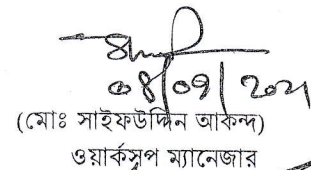 ০৪/০৭/২০২১
(মোঃ সাইফউদ্দিন আকন্দ)
ওয়ার্কসপ ম্যানেজার